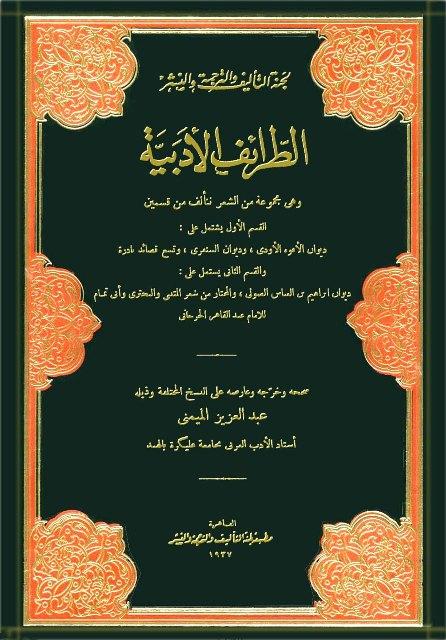 لجنة التأليف والترجمة والنشر
الطرائف الأدبية
وهى مجموعة من الشعر تتألف من قسمين
القسم الأول يشتمل على :
ديوان الأفوه الأودى ، وديوان الشنفرى ، وتسع قصائد نادرة
والقسم الثانى يشتمل على :
ديوان ابراهيم بن العباس الصولى ، والمختار من شعر المتنبى والبحترى وأبى تمام
للامام عبد القاهر الجرجانى
صححه وخرّجه وعارضه على النسخ المختلفة وذيله
عبد العزيز الميمنى
أستاذ الأدب العربى بجامعة عليكرة بالهند
القاهرة
مطبعة لجنة التأليف والترجمة والنشر
١٩٣٧